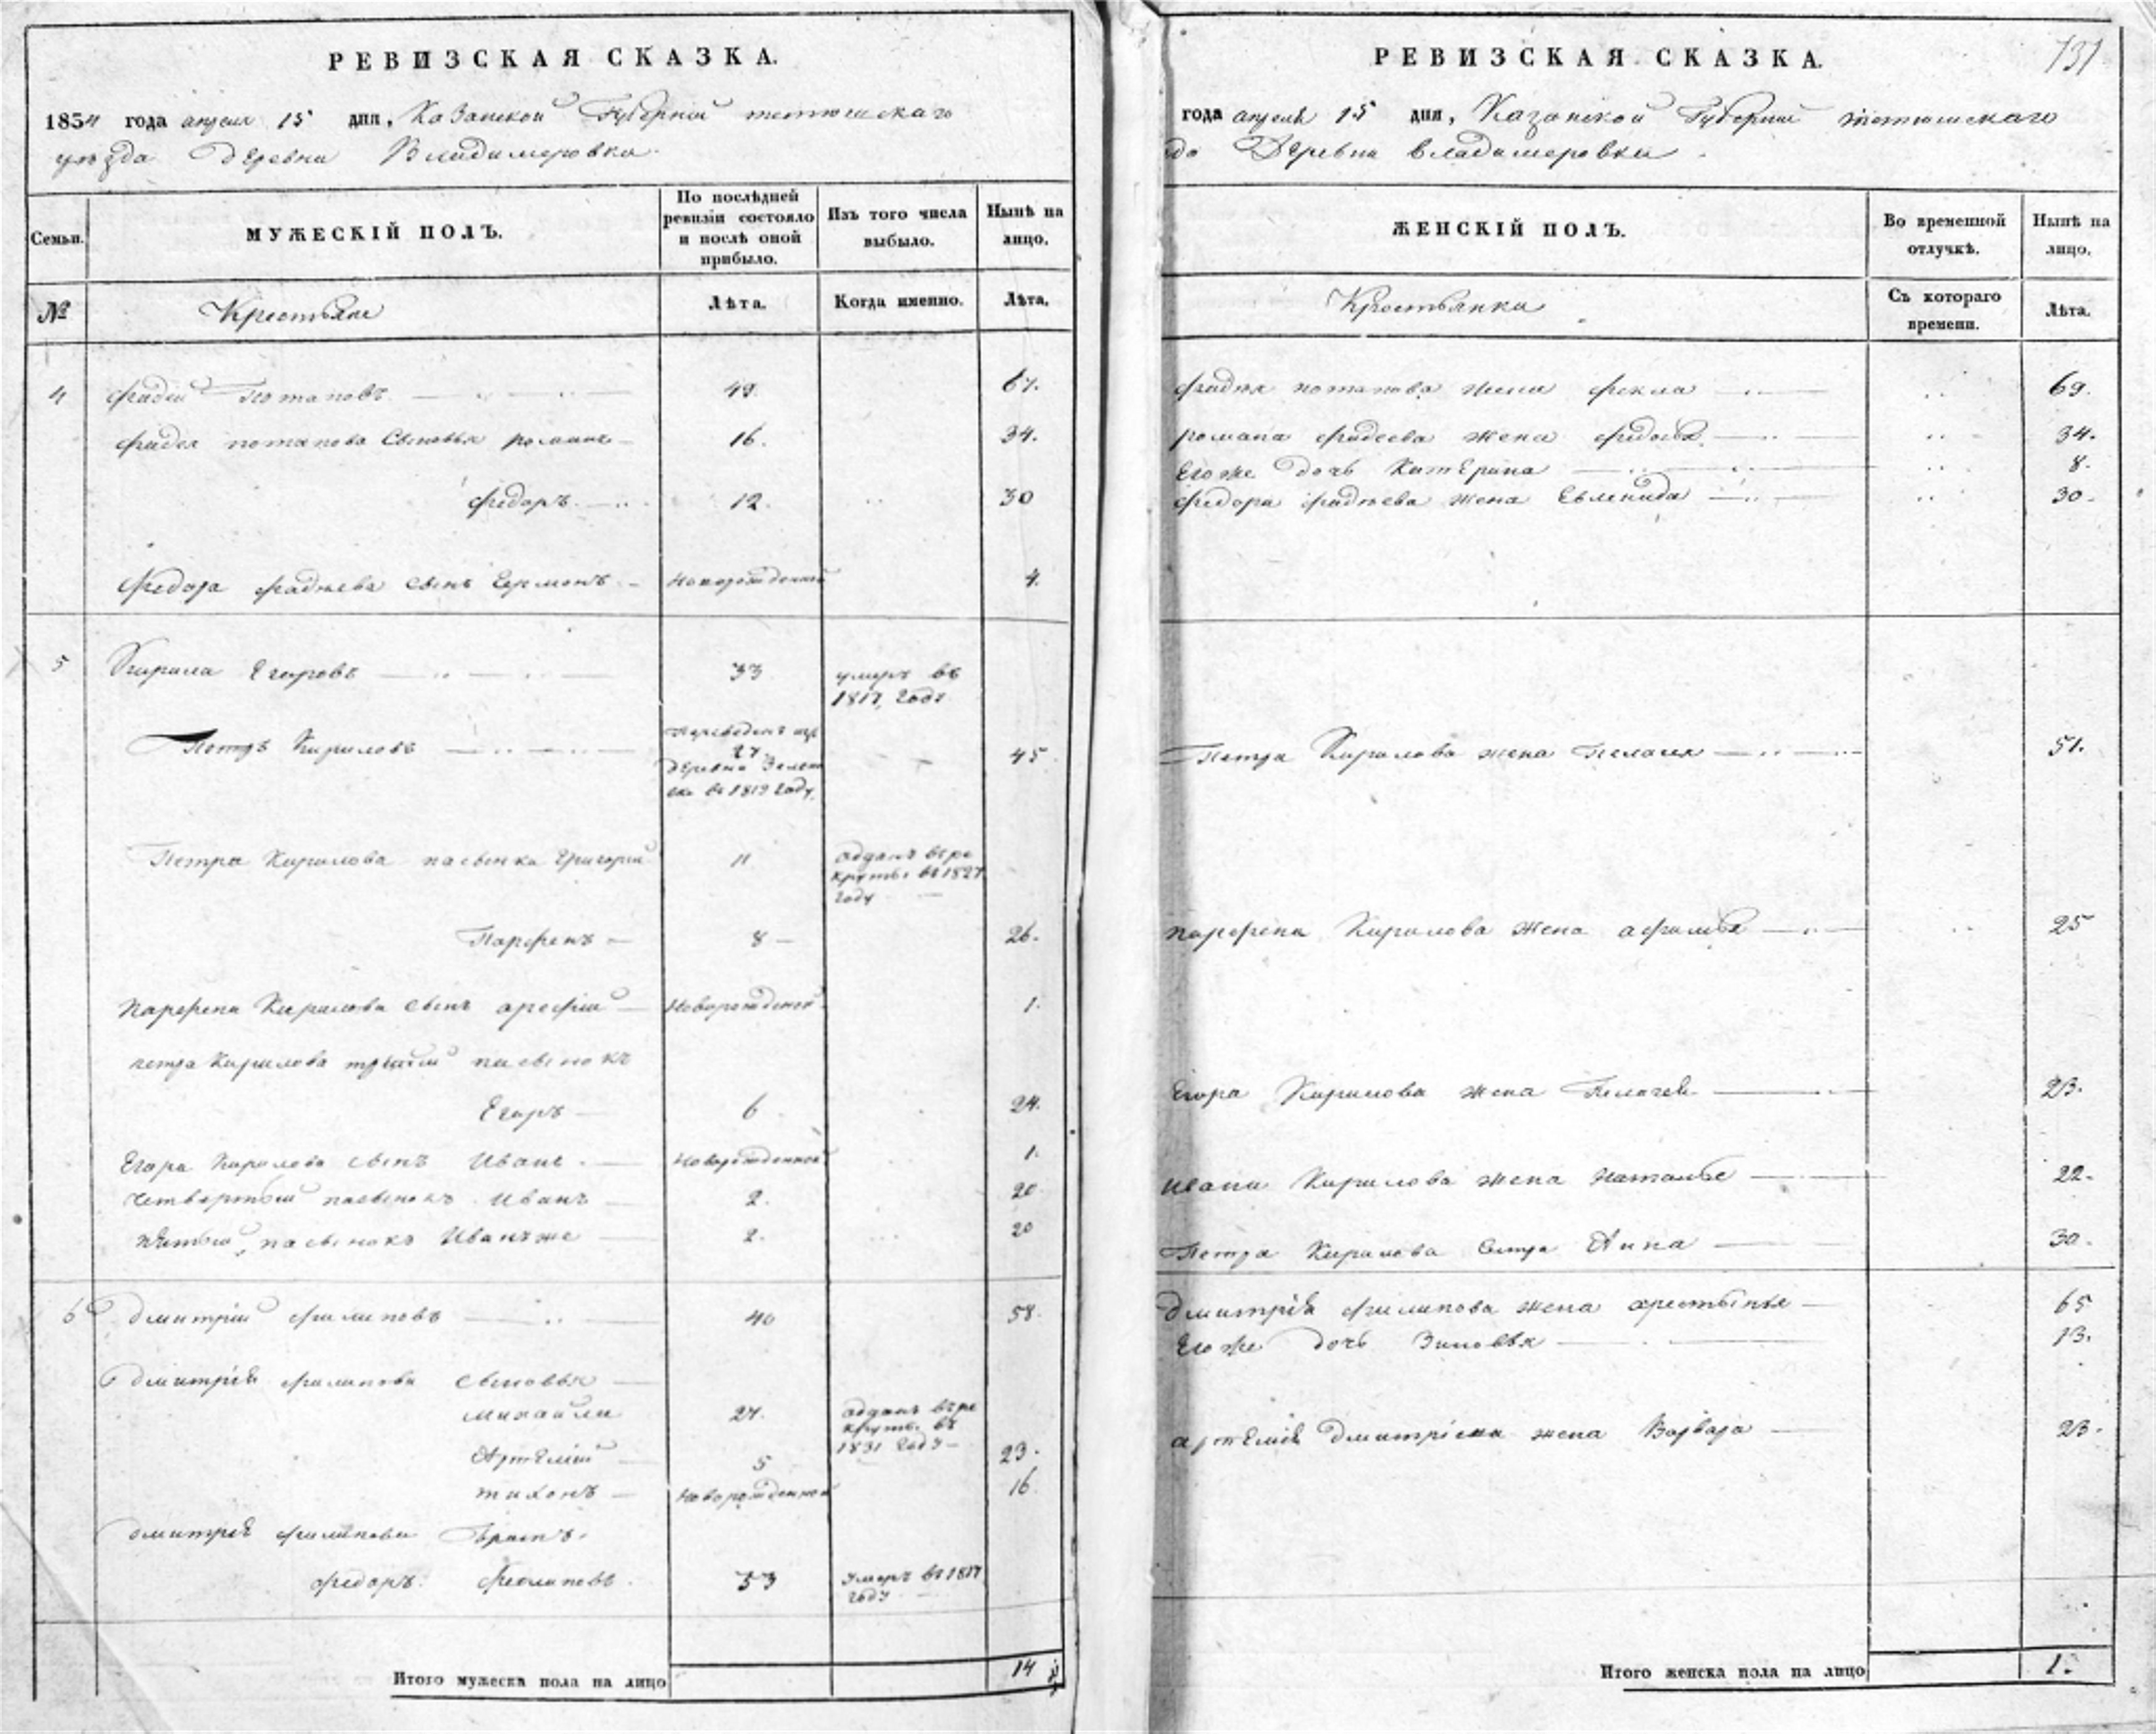 РЕВИЗСКАЯ СКАЗКА.
1834 года апреля 15 дня, Казанской Губернии тетюшскаго
уезда деревни Владимеровки.
Семьи.
МУЖЕСКІЙ ПОЛЪ.
По послѣдней ревизіи состояло и послѣ оной прибыло.
Изъ того числа выбыло.
Нынѣ на лицо.
№
Крестьяне
Лѣта.
Когда именно.
Лѣта.
4 Фадей Потаповъ 49. 67.
Фадея потапова Сыновья романъ 16. 34.
Федоръ 12. 30
Федора Фадѣева сынъ Ермонъ Новорожденный 4.
5 Кирила Егоровъ 33 умеръ въ
1817, Году
Петръ Кириловъ Переведенъ из
27
деревни
въ 1819 Году, 45
Петра Кирилова пасынки Григорий 11 отданъ въ ре
круты въ 1827
году
Парфенъ 8 26.
Парфена Кирилова сынъ Новорожденной 1.
петра Кирилова третий пасынокъ
Егоръ 6 24.
Егора Кирилова сынъ Иванъ Новорожденной 1.
четвертый пасынокъ Иванъ 2. 20
пятый пасынокъ Иванъ же 2. 20
6 Дмитрій Филиповъ 40 58.
Дмитрія Филипова Сыновья
михайли 27. отданъ въ ре
круты въ
1831 Году
Артемій 5 23.
тихонъ Новорожденной 16
дмитрия филипова братъ
федоръ Филиповъ 53 умеръ въ 1817
году
Итого мужеска пола на лицо 14
РЕВИЗСКАЯ СКАЗКА.
131
года апреля 15 дня, Казанской Губернии тетюшскаго
да Деревни владимеровки.
ЖЕНСКІЙ ПОЛЪ.
Во временной отлучкѣ.
Нынѣ на лицо.
Крестьянки
Съ котораго времени.
Лѣта.
Фадѣя потапова жена фекла 69.
романа фадеева жена федосья 34.
Его же дочь Катерина 8.
Федора фадѣева жена Евленида 30.
Петра Кирилова жена Пелагея 51.
парфена Кирилова жена афимья 25
Егора Кирилова жена Пелагея 23.
Ивана Кирилова жена Наталье 22.
Петра Кирилова сестра Анна 30.
Дмитрія филипова жена 65
Его же дочь Зиновья 13.
артемия Дмитріева жена Варвара 23.
Итого женска пола на лицо 1.